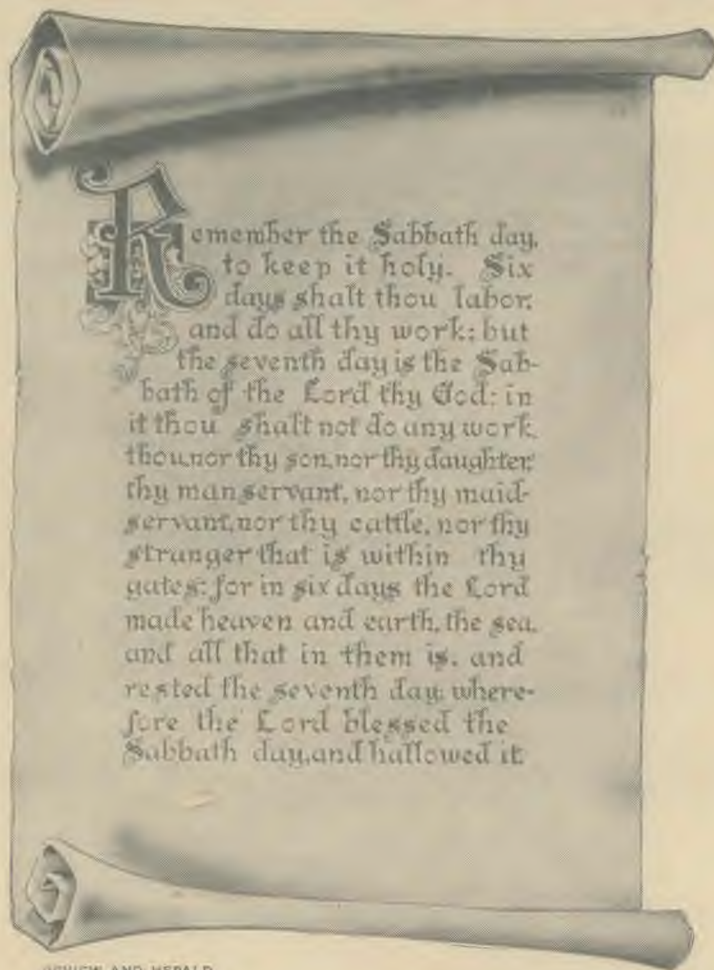 Remember the Sabbath day,
to keep it holy. Six
days shalt thou labor,
and do all thy work: but
the seventh day is the Sab-
bath of the Lord thy God: in
it thou shalt not do any work,
thou, nor thy son, nor thy daughter,
thy manservant, nor thy maid-
servant, nor thy cattle, nor thy
stranger that is within thy
gates: for in six days the Lord
made heaven and earth, the sea,
and all that in them is, and
rested the seventh day: where-
fore the Lord blessed the
Sabbath day, and hallowed it.
REVIEW AND HERALD